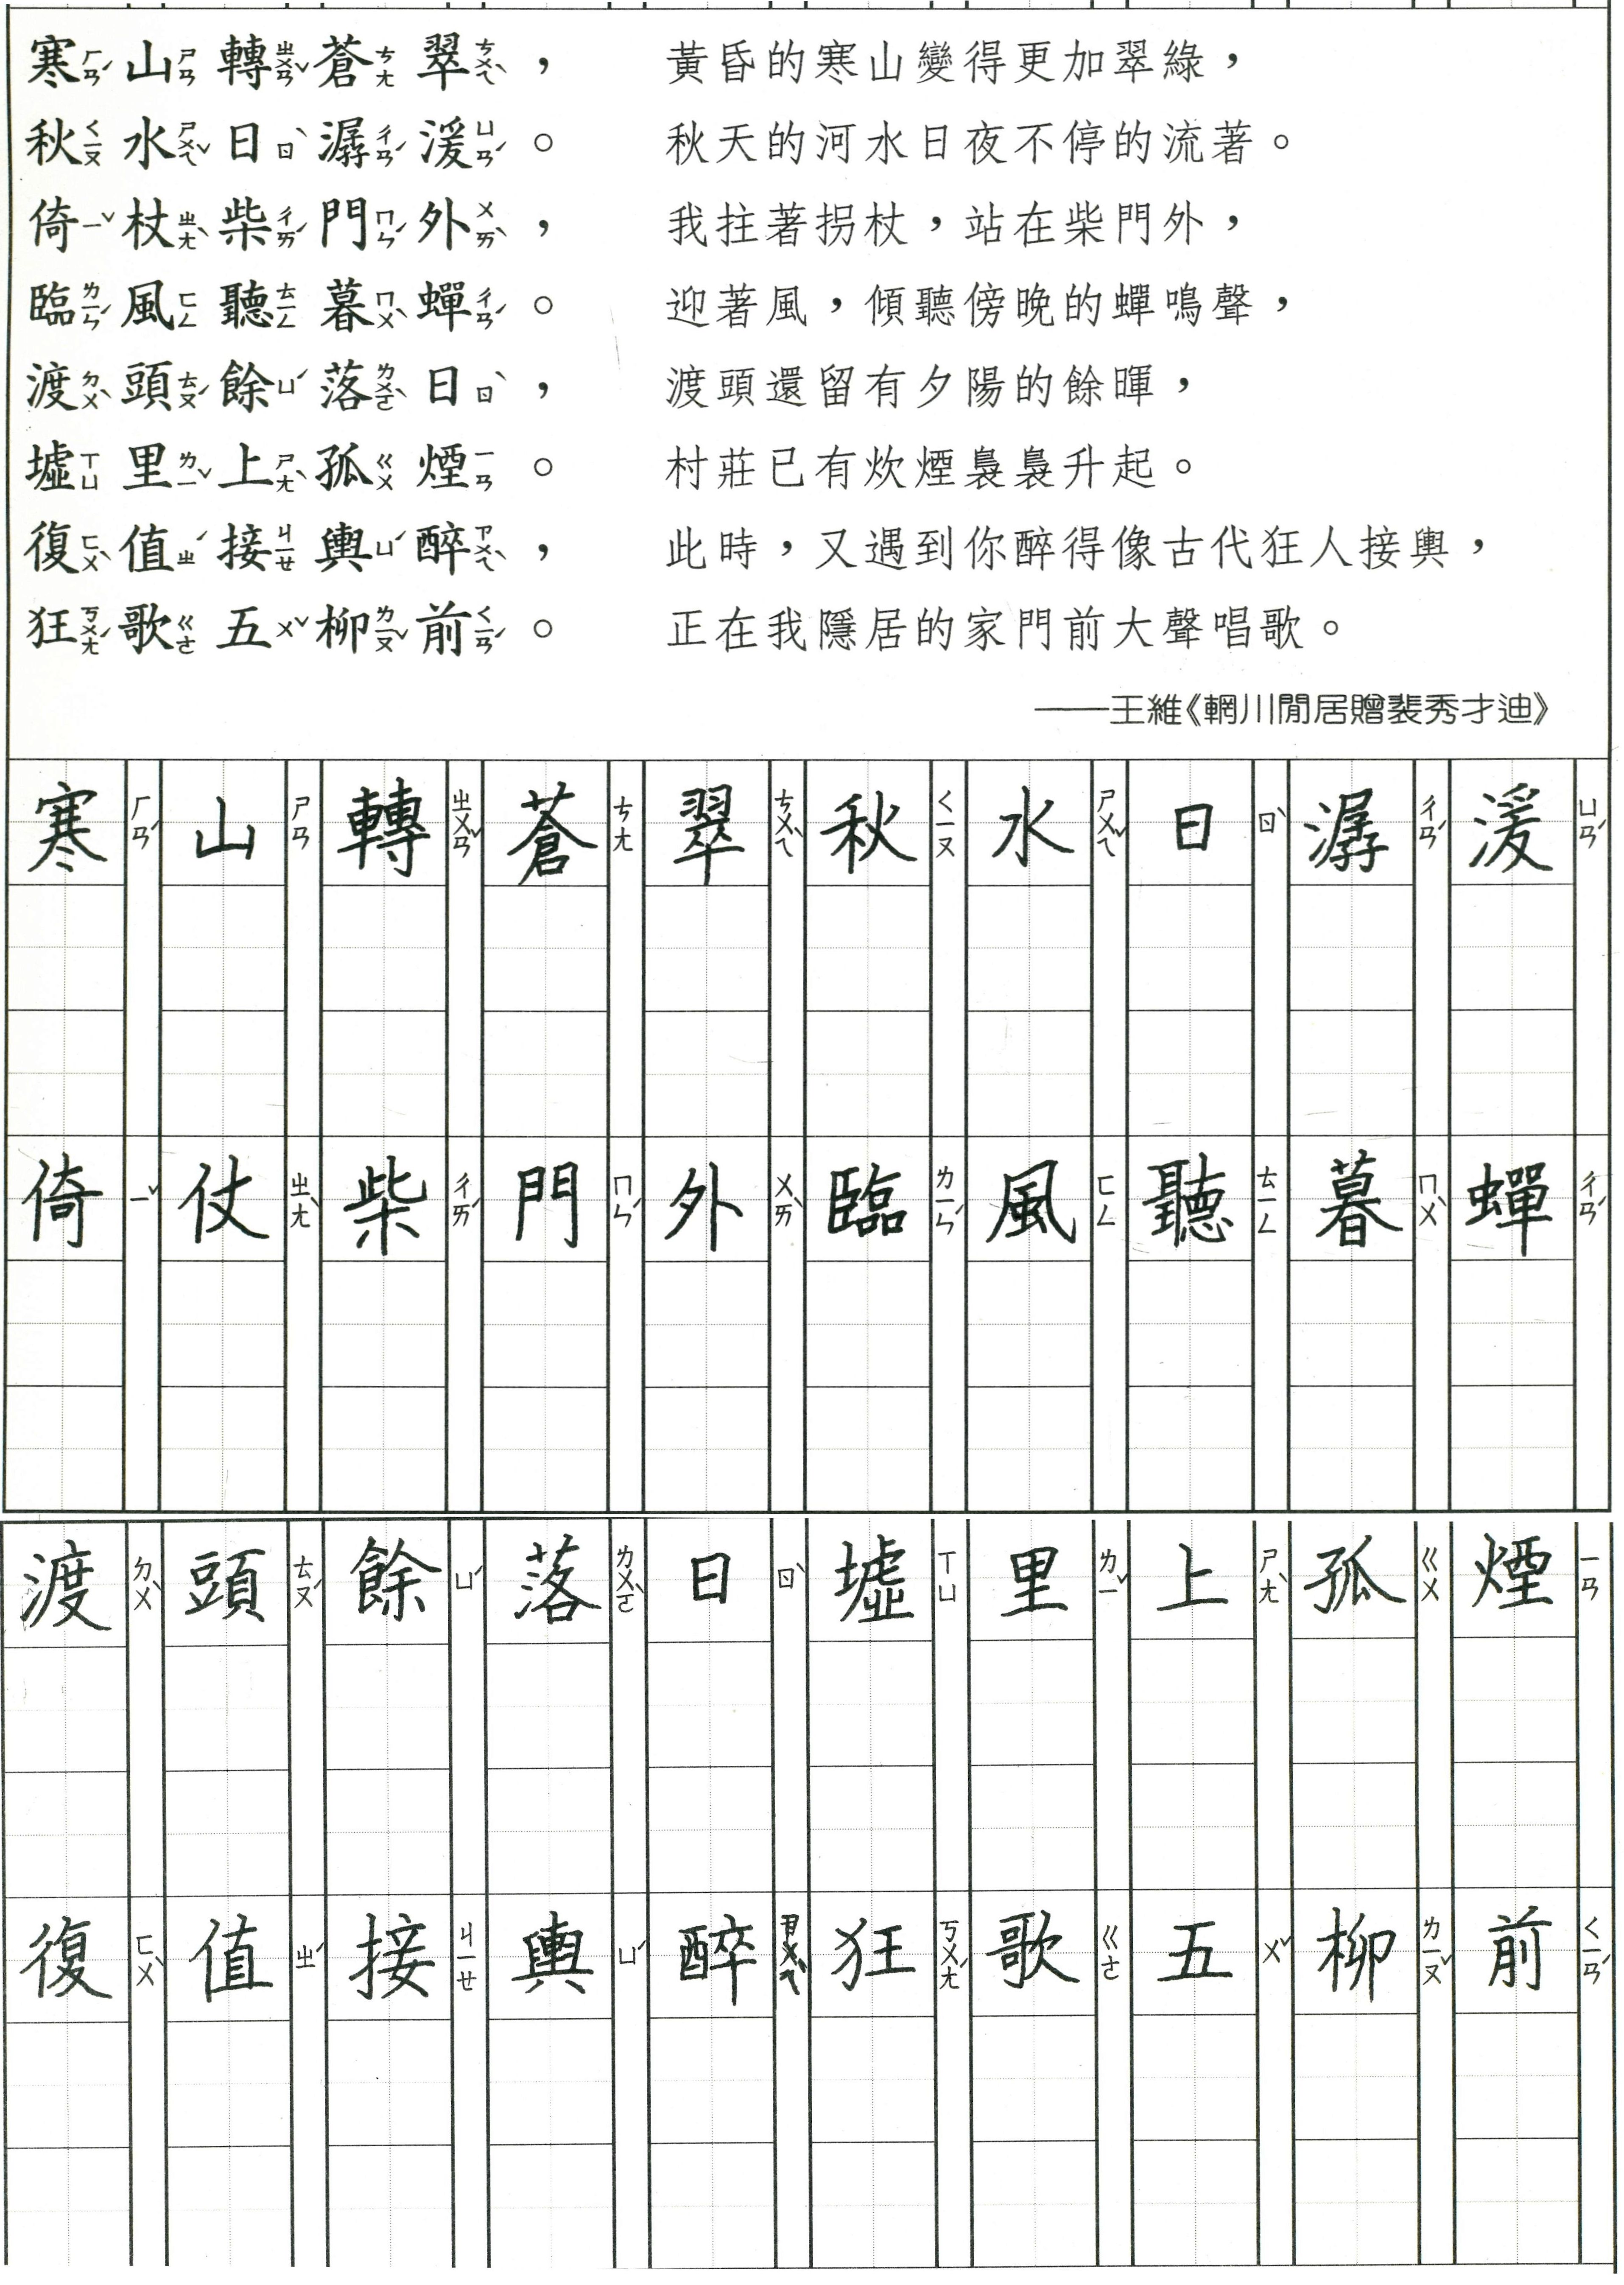 寒ㄏㄢˊ山ㄕㄢ轉ㄓㄨㄢˇ蒼ㄘㄤ翠ㄘㄨㄟˋ， 黃昏的寒山變得更加翠綠，
秋ㄑㄧㄡ水ㄕㄨㄟˇ日ㄖˋ潺ㄔㄢˊ湲ㄩㄢˊ。 秋天的河水日夜不停的流著。
倚ㄧˇ杖ㄓㄤˋ柴ㄔㄞˊ門ㄇㄣˊ外ㄨㄞˋ， 我拄著拐杖，站在柴門外，
臨ㄌㄧㄣˊ風ㄈㄥ聽ㄊㄧㄥ暮ㄇㄨˋ蟬ㄔㄢˊ。 迎著風，傾聽傍晚的蟬鳴聲，
渡ㄉㄨˋ頭ㄊㄡˊ餘ㄩˊ落ㄌㄨㄛˋ日ㄖˋ， 渡頭還留有夕陽的餘暉，
墟ㄒㄩ里ㄌㄧˇ上ㄕㄤˋ孤ㄍㄨ煙ㄧㄢ。 村莊已有炊煙裊裊升起。
復ㄈㄨˋ值ㄓˊ接ㄐㄧㄝ輿ㄩˊ醉ㄗㄨㄟˋ， 此時，又遇到你醉得像古代狂人接輿，
狂ㄎㄨㄤˊ歌ㄍㄜ五ㄨˇ柳ㄌㄧㄡˇ前ㄑㄧㄢˊ。 正在我隱居的家門前大聲唱歌。
——王維《輞川閒居贈裴秀才迪》
寒ㄏㄢˊ山ㄕㄢ轉ㄓㄨㄢˇ蒼ㄘㄤ翠ㄘㄨㄟˋ秋ㄑㄧㄡ水ㄕㄨㄟˇ日ㄖˋ潺ㄔㄢˊ湲ㄩㄢˊ
倚ㄧˇ仗ㄓㄤˋ柴ㄔㄞˊ門ㄇㄣˊ外ㄨㄞˋ臨ㄌㄧㄣˊ風ㄈㄥ聽ㄊㄧㄥ暮ㄇㄨˋ蟬ㄔㄢˊ
渡ㄉㄨˋ頭ㄊㄡˊ餘ㄩˊ落ㄌㄨㄛˋ日ㄖˋ墟ㄒㄩ里ㄌㄧˇ上ㄕㄤˋ孤ㄍㄨ煙ㄧㄢ
復ㄈㄨˋ值ㄓˊ接ㄐㄧㄝ輿ㄩˊ醉ㄗㄨㄟˋ狂ㄎㄨㄤˊ歌ㄍㄜ五ㄨˇ柳ㄌㄧㄡˇ前ㄑㄧㄢˊ